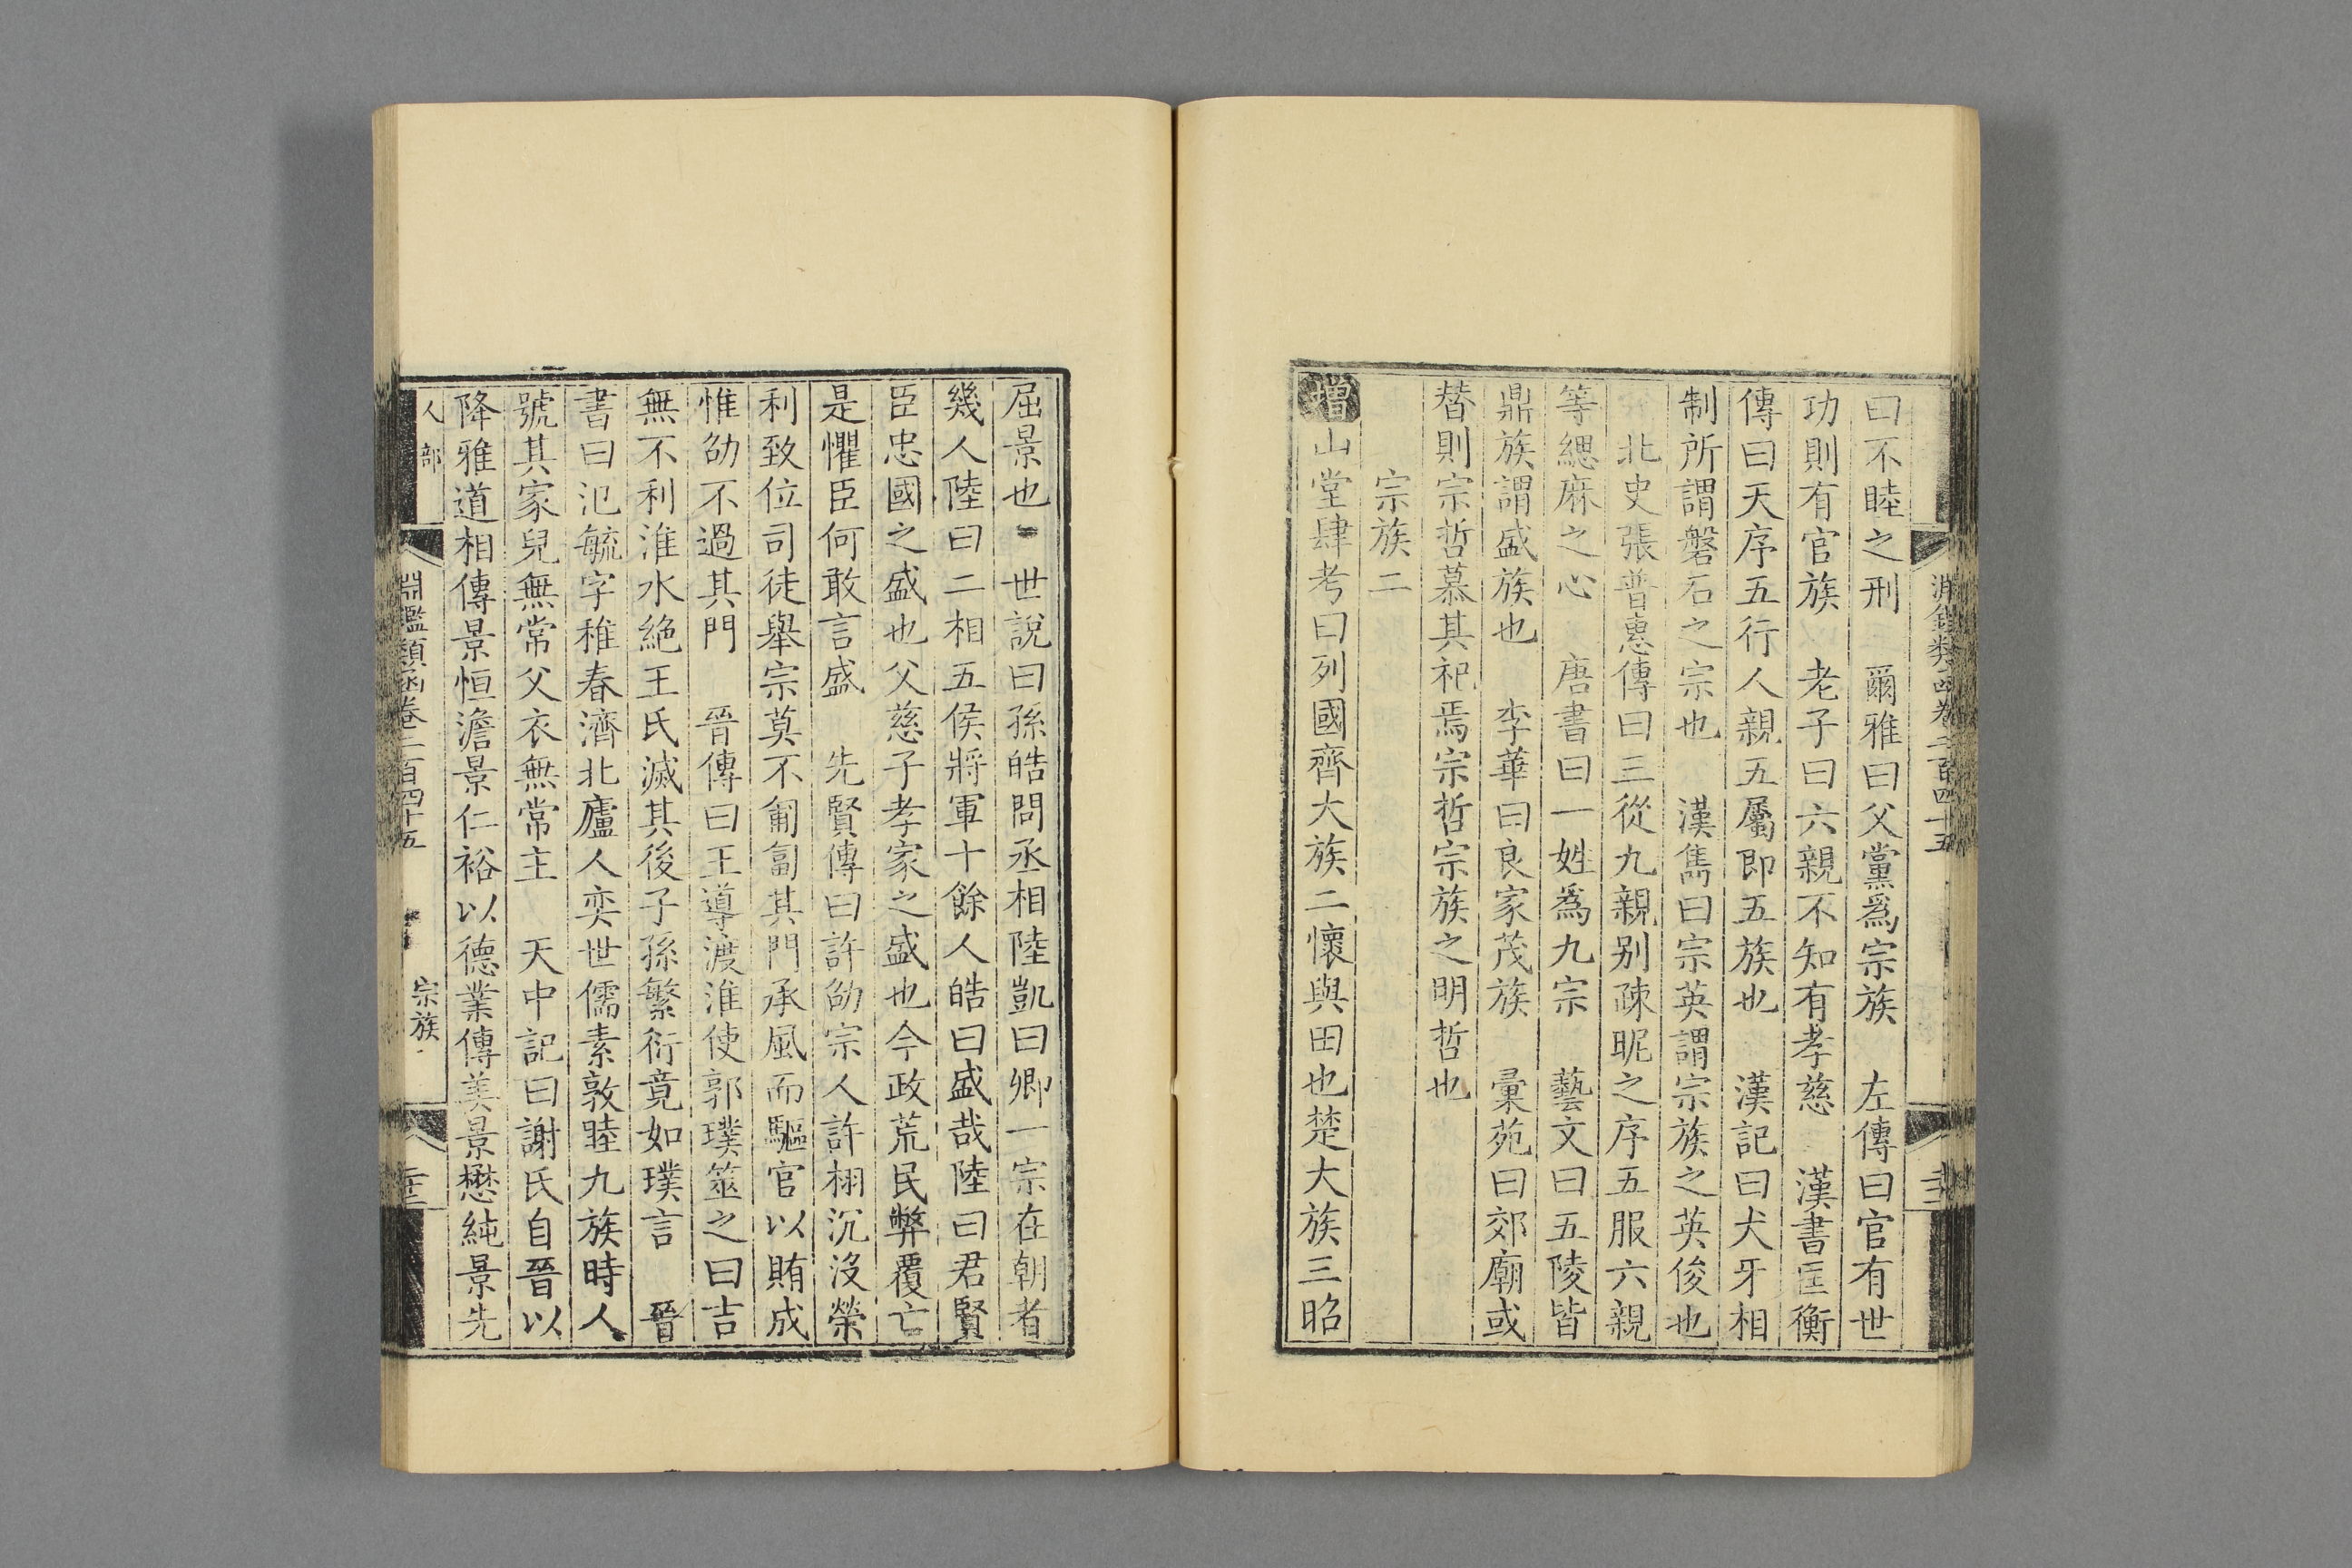 曰不睦之刑 爾雅曰父黨爲宗族 左傳曰官有世
功則有官族 老子曰六親不知有孝慈 漢書匡衡
傳曰天序五行人親五屬即五族也 漢記曰犬牙相
制所謂磐石之宗也 漢雋曰宗英謂宗族之英俊也
北史張普惠傳曰三從九親别疎昵之序五服六親
等緦麻之心 唐書曰一姓爲九宗 藝文曰五陵皆
鼎族謂盛族也 李華曰良家茂族 彙苑曰郊廟或
替則宗哲慕其祀焉宗哲宗族之明哲也
宗族二
增山堂肆考曰列國齊大族二懷與田也楚大族三昭
屈景也 世說曰孫皓問丞相陸凱曰卿一宗在朝者
幾人陸曰二相五侯將軍十餘人皓曰盛哉陸曰君賢
臣忠國之盛也父慈子孝家之盛也今政荒民弊覆亡
是懼臣何敢言盛 先賢傳曰許劭宗人許栩沉沒榮
利致位司徒舉宗莫不匍匐其門承風而驅官以賄成
惟劭不過其門 晉傳曰王導渡淮使郭璞筮之曰吉
無不利淮水絶王氏滅其後子孫繁衍竟如璞言 晉
書曰氾毓字稚春濟北廬人奕世儒素敦睦九族時人
號其家兒無常父衣無常主 天中記曰謝氏自晉以
降雅道相傳景恒澹景仁裕以德業傳美景懋純景先
人部 淵鑑類函卷二百四十五 宗族